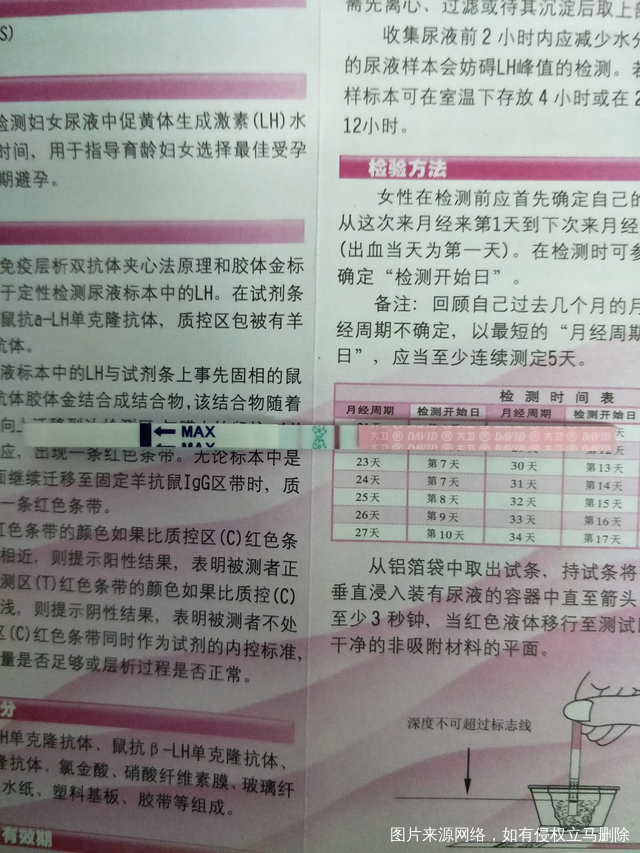 S)
检测妇女尿液中促黄体生成激素(LH)水
时间，用于指导育龄妇女选择最佳受孕
期避孕。
免疫层析双抗体夹心法原理和胶体金标
于定性检测尿液标本中的LH。在试剂条
鼠抗a-LH单克隆抗体，质控区包被有羊
抗体。
液标本中的LH与试剂条上事先固相的鼠
抗体胶体金结合成结合物,该结合物随着
应，出现一条红色条带。无论标本中是
面继续迁移至固定羊抗鼠IgG区带时，质
一条红色条带。
红色条带的颜色如果比质控区(C)红色条
相近，则提示阳性结果，表明被测者正
测区(T)红色条带的颜色如果比质控(C)
浅，则提示阴性结果，表明被测者不处
区(C)红色条带同时作为试剂的内控标准,
量是否足够或层析过程是否正常。
分
H单克隆抗体、鼠抗β-LH单克隆抗体、
隆抗体、氯金酸、硝酸纤维素膜、玻璃纤
水纸、塑料基板、胶带等组成。
有效期
需先离心、过滤或待其沉淀后取上
收集尿液前2小时内应减少水分
的尿液样本会妨碍LH峰值的检测。若
样标本可在室温下存放4小时或在2
12小时。
检验方法
女性在检测前应首先确定自己的
从这次来月经来第1天到下次来月经
(出血当天为第一天)。在检测时可参
确定“检测开始日”。
备注：回顾自己过去几个月的月
经周期不确定，以最短的“月经周期
日”，应当至少连续测定5天。
检测时间表
月经周期 检测开始日 月经周期 检测开始日
23天 第7天 30天 第13天
24天 第7天 31天 第14天
25天 第8天 32天 第15天
26天 第9天 33天 第16天
27天 第10天 34天 第17天
MAX
MAX
大卫® DAVID® 大卫® DAVID® 大卫® DAVID®
从铝箔袋中取出试条，持试条将
垂直浸入装有尿液的容器中直至箭头
至少3秒钟，当红色液体移行至测试
干净的非吸附材料的平面。
深度不可超过标志线
图片来源网络，如有侵权立马删除